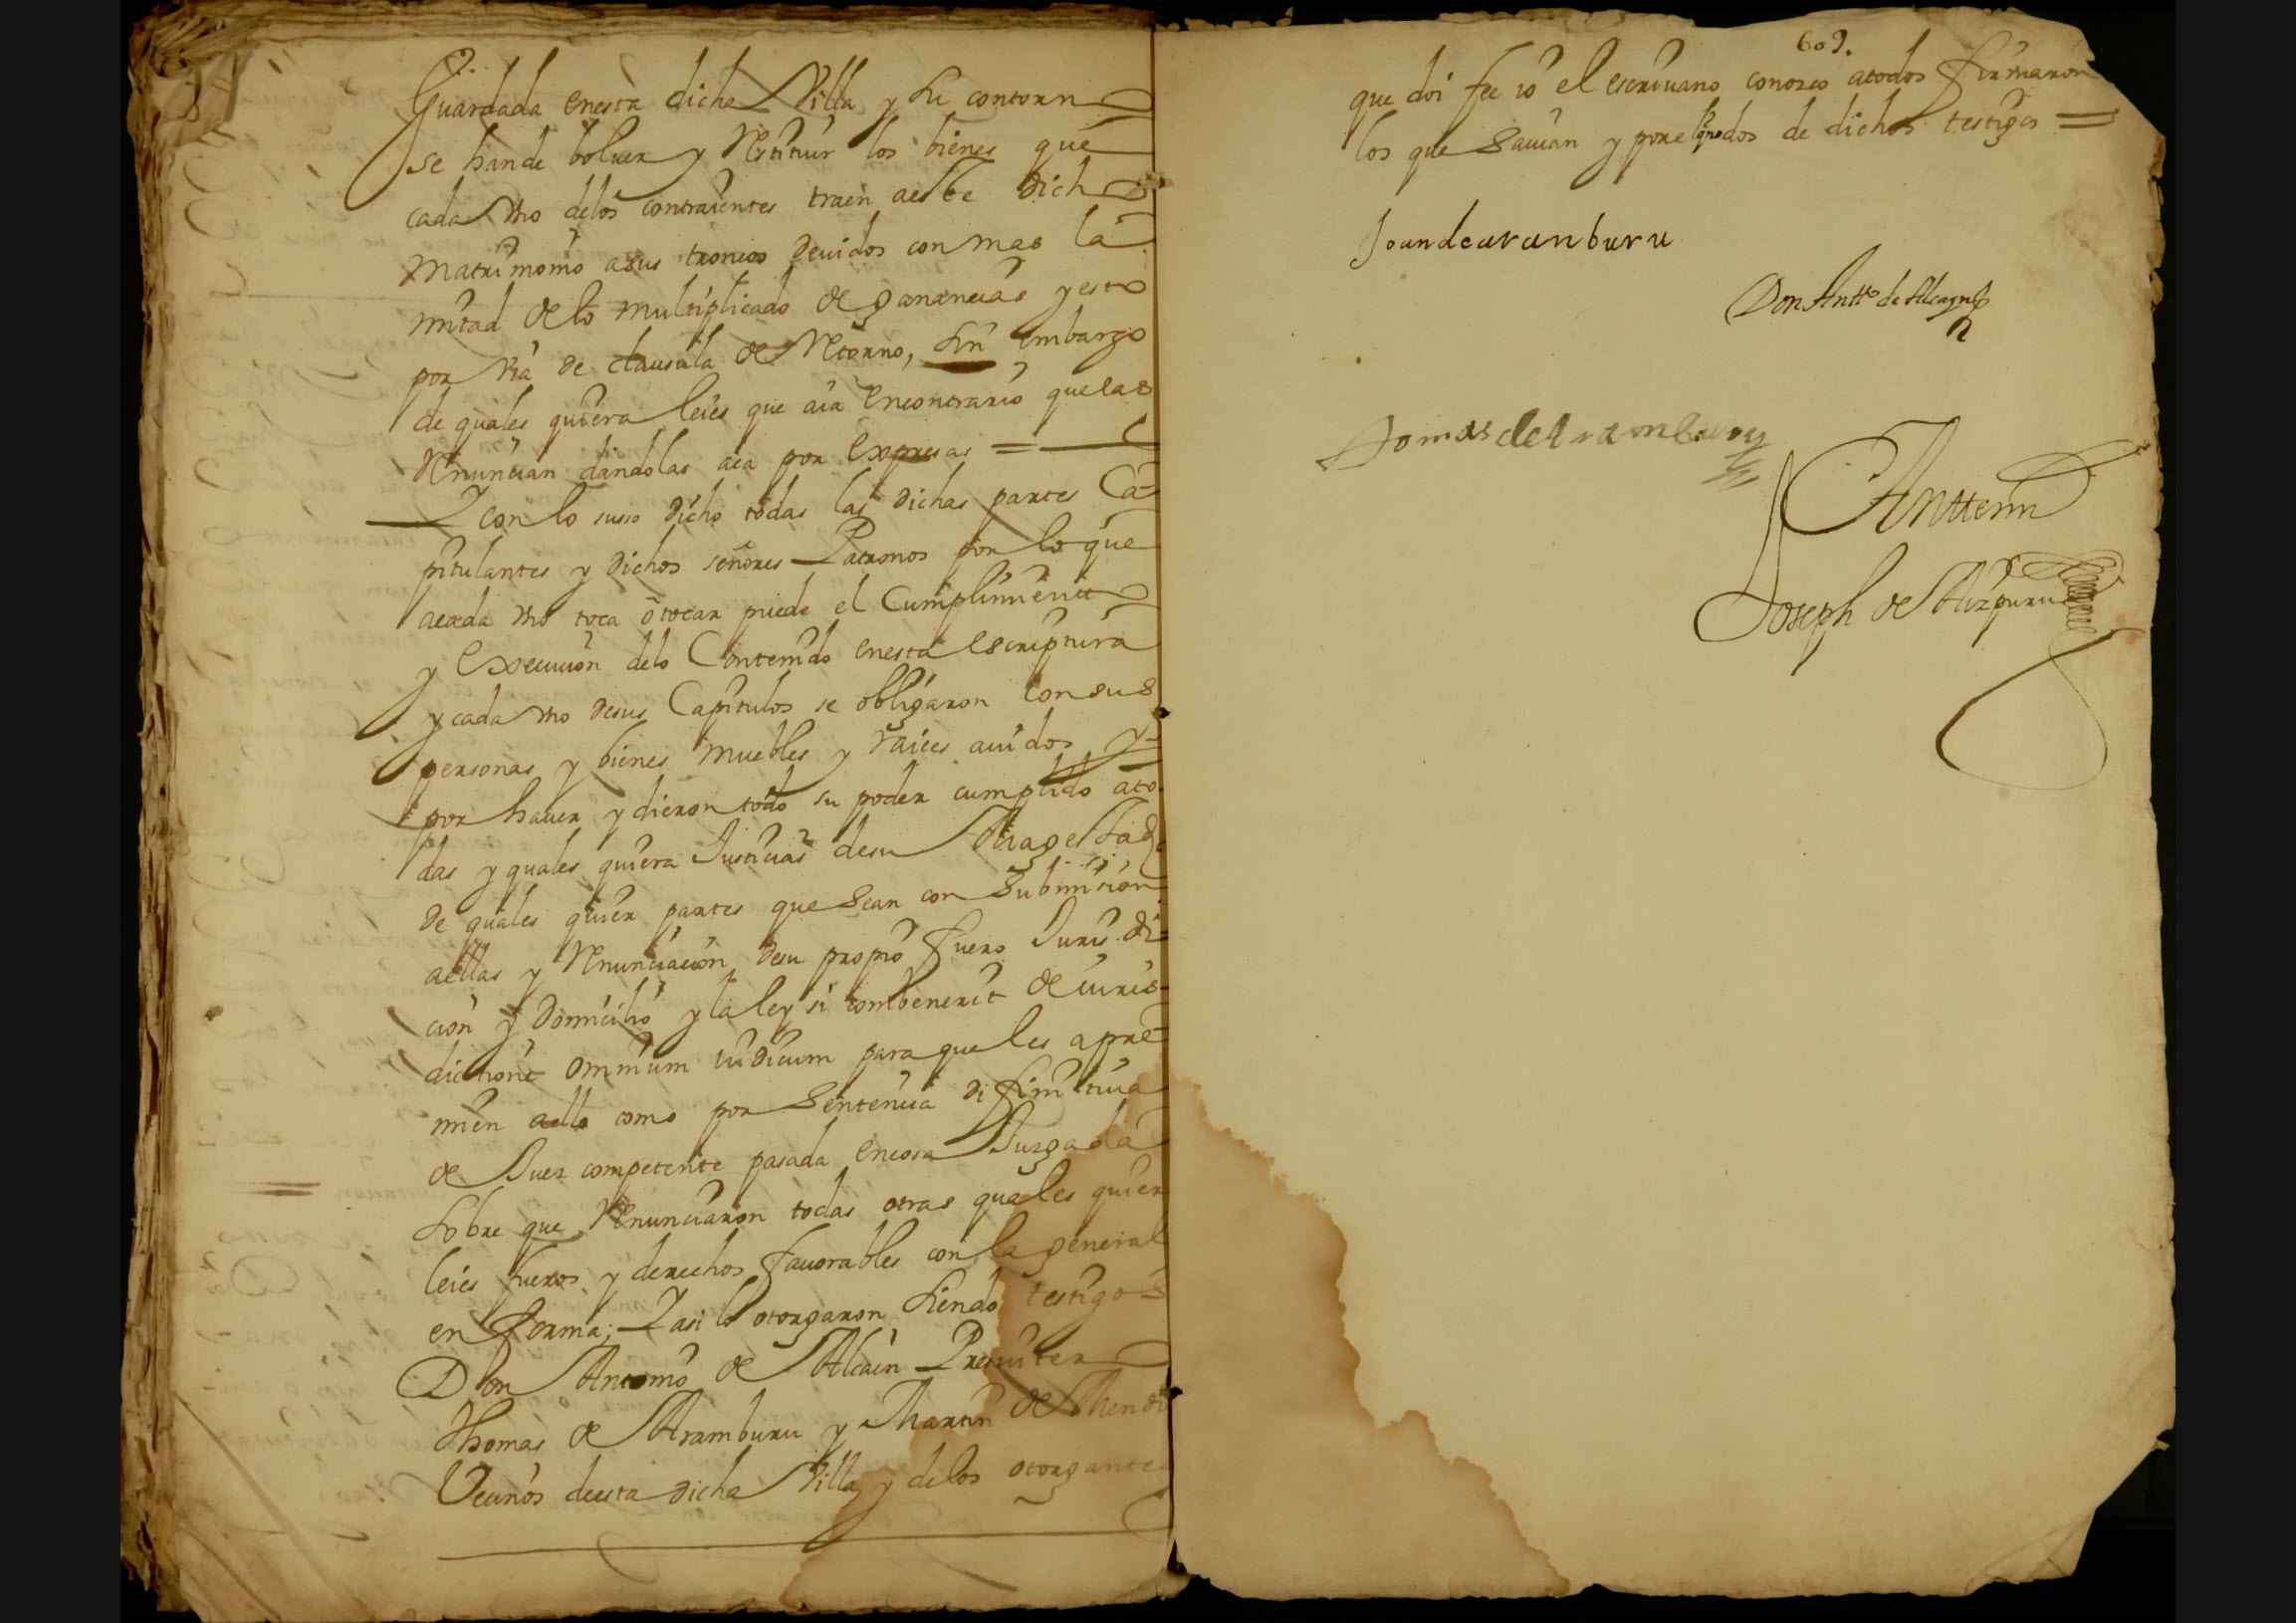 Guardada enesta dicha Villa y su contorno
se hande bolver y Restituir los bienes que
cada vno delos contraientes traen aeste dicho
Matrimonio asus troncos devidos con mas la
mitad de lo multiplicado de ganancias y esto
por via de clausula de Retorno, sin embargo
de quales quiera leies que aia encontrario quelas
Renuncian dandolas aca por expresas =
Y con lo suso dicho todas las dichas partes Ca-
pitulantes y dichos señores Patronos por lo que
acada vno toca o tocar puede el Cumplimiento
y execucion delo Contenido enesta escriptura
y cada vno desus Capitulos se obligaron con sus
personas y bienes muebles y raices auidos y-
por hauer y dieron todo su poder cumplido ato-
das y quales quiera Justicias desu Magestad
de quales quier partes que sean con submision
aellas y Renunciacion desu propio fuero Juris di-
cion y Domicilio y la ley si combenerit de iuris-
dictione omnium iudicum para que les apre-
mien aello como por sentencia difinitiua
de Juez competente pasada encosa Juzgada
sobre que Renunciaron todas otras quales quier
leies fueros y derechos fauorables con la general
en forma; Y asi lo otorgaron siendo testigos
Don Antonio de Alcain Presuitero
Thomas de Aramburu y Martin de Mendi
Vecinos deesta dicha Villa y delos otorgantes
609.
que doi fee io el escriuano conozco atodos firmaron
los que sauian y por el [...] dos de dichos testigos =
Joandearanburu
Don Antto de Alcayn
Tomas de Aramburu
Anttemi
Joseph de Aizpuru